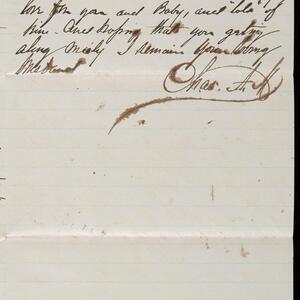 love for you and Baby, and "lots" of
him. And hoping that you getting
along nicely I remain Your loving
Husband
Chas. H.